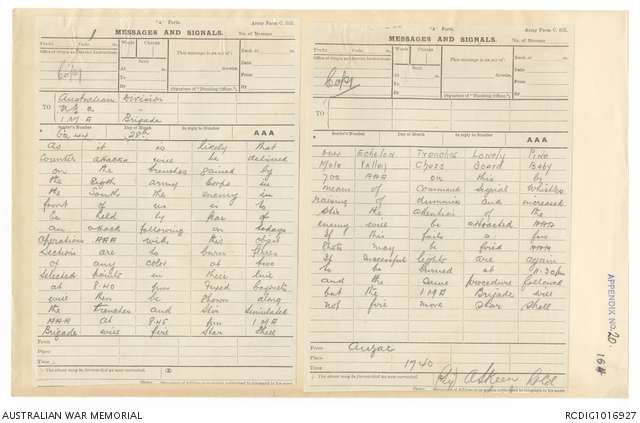 "A" Form. Army Form C. 2121.
MESSAGES AND SIGNALS. No. of Message
Prefix Code m. Words Charge This message is on a/c of:
Office of Origin and Service Instructions
Copy
Sent
At m.
To
By
(Signature of "Franking Officer.")
TO Australian Division
NZ &
1 M A Brigade
Sender's Number Day of Month In reply to Number AAA
28th
As it is likely that
Counter attacks will be delivered
on the trenches gained by
the Eighth army Corps in
the South the enemy in
front of us is to
be held by fear of
an attack following on todays
Operations AAA with this object
Sections are to burn flares
of any color at five
selected points in their line
at 8.40 pm fixed bayonets
will then be shown along
the trenches and stir simulated
AAA At 8.45 pm 1 M A
Brigade will fire Star Shell
"A" Form. Army Form C. 2121.
MESSAGES AND SIGNALS. No. of Message
Prefix Code m. Words Charge This message is on a/c of:
Office of Origin and Service Instructions
Copy
Sent
At m.
To
By
(Signature of "Franking Officer.")
TO
Sender's Number Day of Month In reply to Number AAA
over Echelon Trenches Lonely Pine
Mule Valley Chess Board Baby
700 AAA on this by
means of Command signal Whistles
raising of dummies and increased
stir the attention of the
enemy will be attracted AAA
If this fails a few
shots may be fired AAA
If successful lights are again
to be burned at 9.30pm
and the same procedure followed
but the 1 M A Brigade will
not fire more Star Shell
From Anzac
Place
Time 1740
A Skeen
APPENDIX No. 20.
AUSTRALIAN WAR MEMORIAL
RCDIG1016927